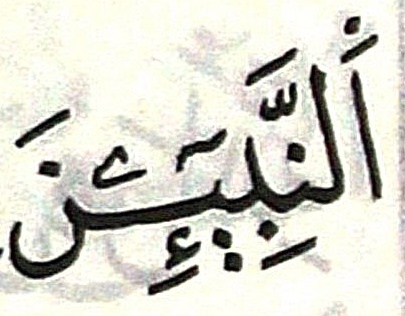 اَ۬لنَّبِيٓـِٕۧنَ